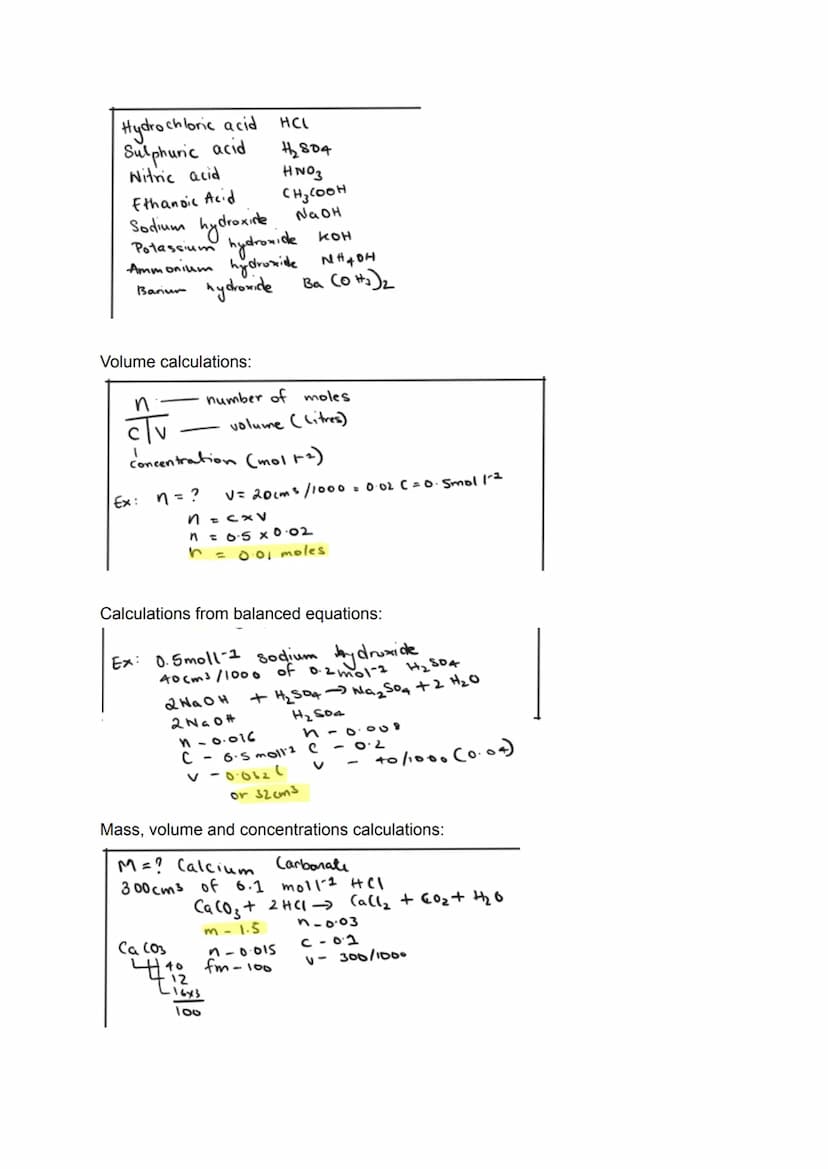 Hydrochloric acid HCl
Sulphuric acid H₂SO4
Nitric acid HNO₃
Ethanoic Acid CH₃COOH
Sodium hydroxide NaOH
Potassium hydroxide KOH
Ammonium hydroxide NH4OH
Barium hydroxide Ba (OH₃)₂
Volume calculations:
n — number of moles
C V — volume (litres)
concentration (mol l-1)
Ex: n = ? V = 20cm³/1000 = 0.02 C = 0.5mol l-1
n = c x V
n = 0.5 x 0.02
n = 0.01 moles
Calculations from balanced equations:
Ex: 0.5moll-1 sodium hydroxide
40cm³/1000 of 0.2mol-1 H₂SO4
2NaOH + H₂SO4 → Na₂SO4 + 2 H₂O
2NaOH H₂SO4
n - 0.016 n - 0.008
C - 0.5 moll-1 C - 0.2
V - 0.032 l V - 40/1000 (0.04)
or 32cm³
Mass, volume and concentrations calculations:
M = ? Calcium Carbonate
300cm³ of 0.1 moll-1 HCl
CaCO₃ + 2HCl → CaCl₂ + CO₂ + H₂O
m - 1.5 n - 0.03
CaCO₃ n - 0.015 C - 0.1
40 fm - 100 V - 300/1000
12
16x3
100